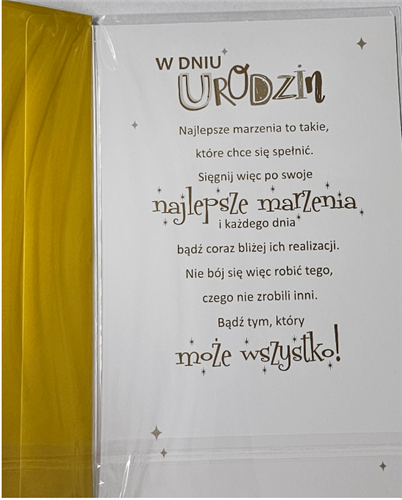 W DNIU
URODZIN
Najlepsze marzenia to takie,
które chce się spełnić.
Sięgnij więc po swoje
najlepsze marzenia
i każdego dnia
bądź coraz bliżej ich realizacji.
Nie bój się więc robić tego,
czego nie zrobili inni.
Bądź tym, który
może wszystko!